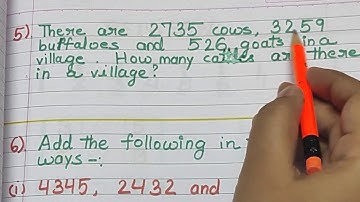 5) There are 2735 cows, 3259
buffaloes and 526 goats in a
village. How many are there
in a village?
6) Add the following in
ways -:
(i) 4345, 2432 and